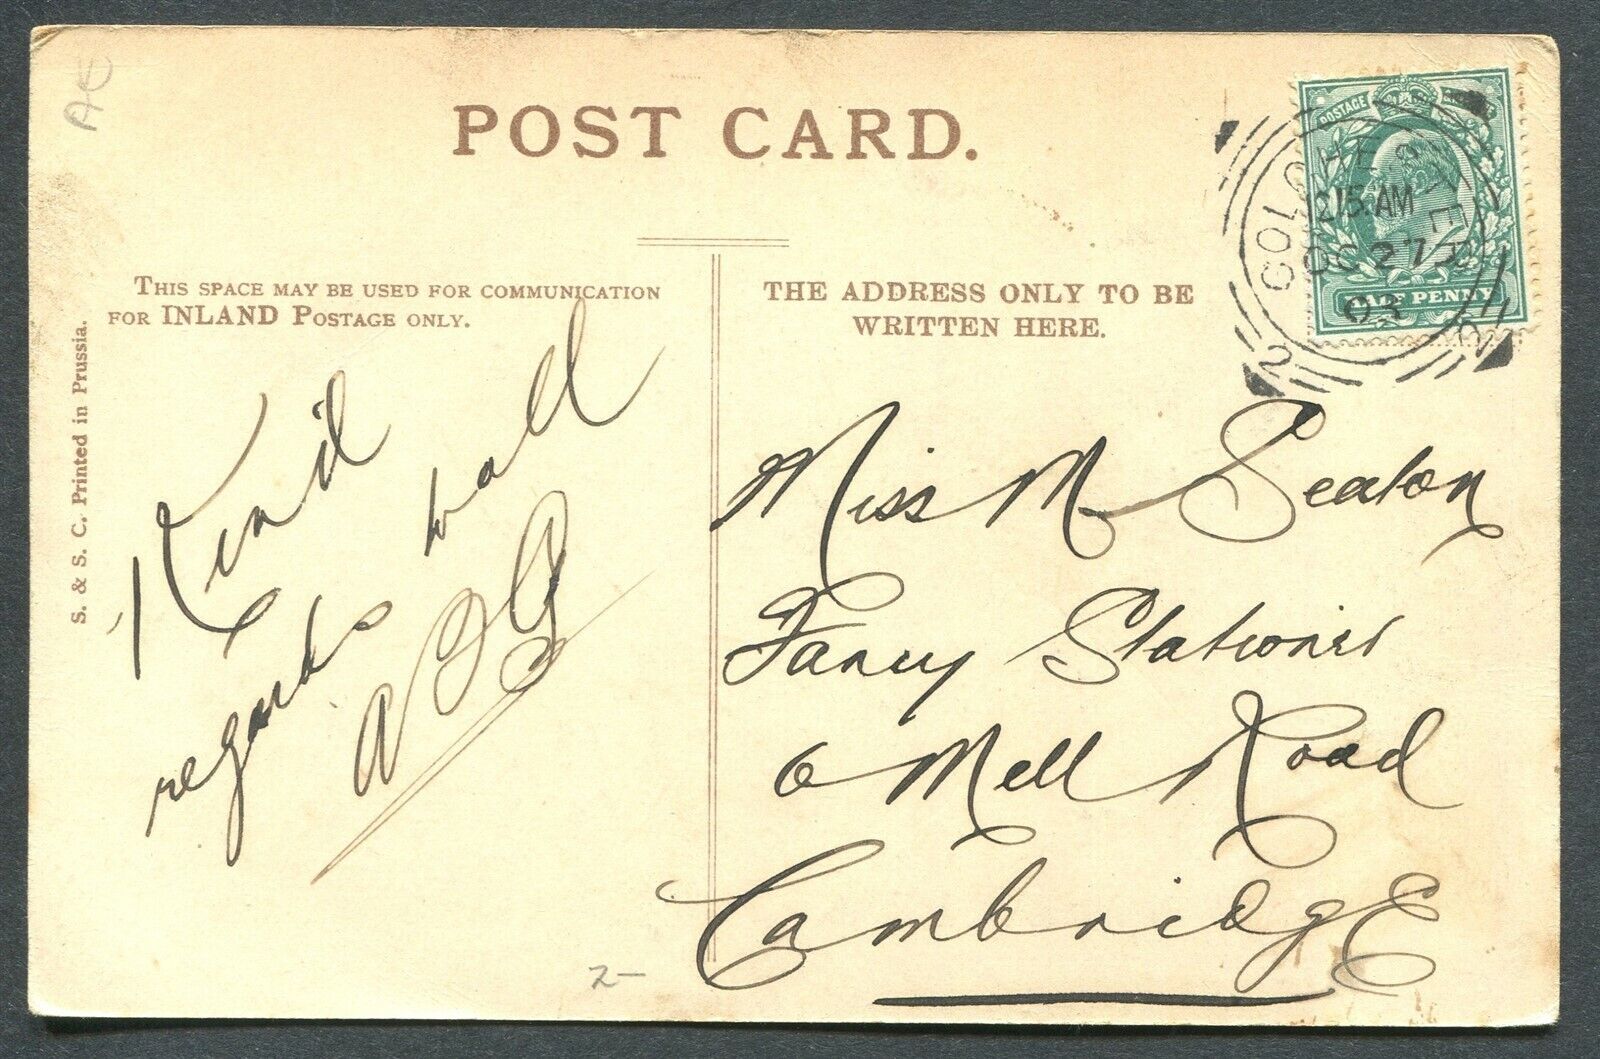 POST CARD.
THIS SPACE MAY BE USED FOR COMMUNICATION
FOR INLAND POSTAGE ONLY.
THE ADDRESS ONLY TO BE
WRITTEN HERE.
S. & S. C. Printed in Prussia.
POSTAGE
HALF PENNY
COLCHESTER
215 AM
OC 27
03
Kind
regards
to all
Miss M Seaton
Fancy Stationer
6 Mill Road
Cambridge
2-